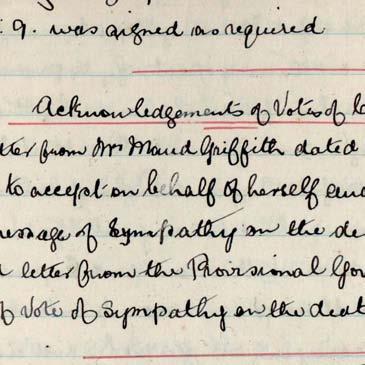 9. was signed as required
Acknowledgements of Votes of
from Mrs Maud Griffith dated
to accept on behalf of herself and
message of Sympathy on the de
letter from the Provisional Gov
of Vote of Sympathy on the deat